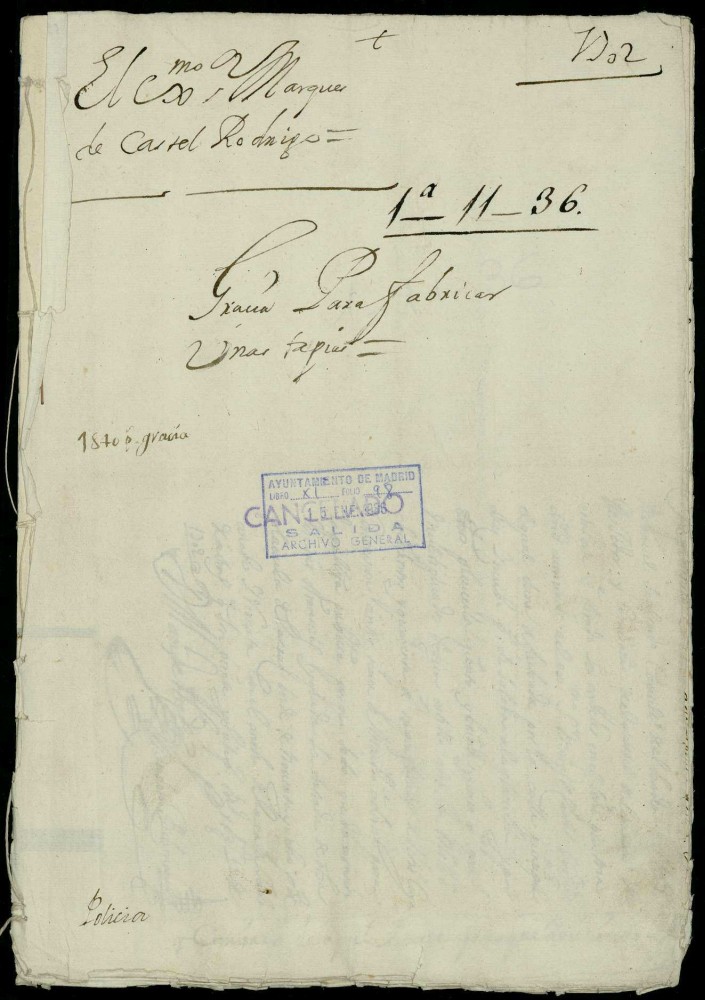 +
El Exmo Sr Marques
de Castel Rodrigo =
1702
1ª 11 - 36.
Gracia Para fabricar
Unas tapias =
gracia
AYUNTAMIENTO DE MADRID
LIBRO XI FOLIO 98
CANCELADO
15 ENE. 1986
SALIDA
ARCHIVO GENERAL
Policia